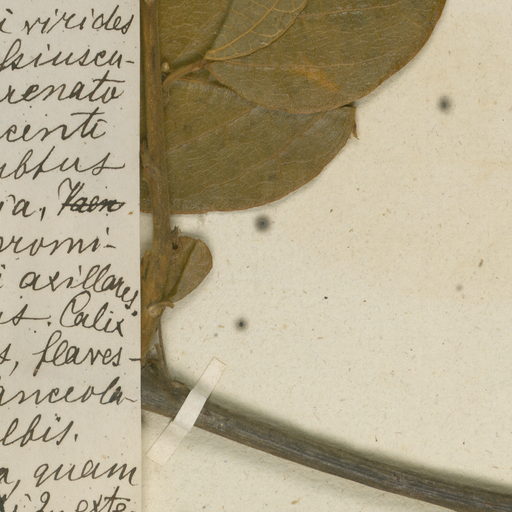 i virides
ssiuscu-
renato
centi
ubtus
ia, Haen
promi-
i axillares
is. Calix
s, flaves-
anceola-
lbis.
a, quam
exte-